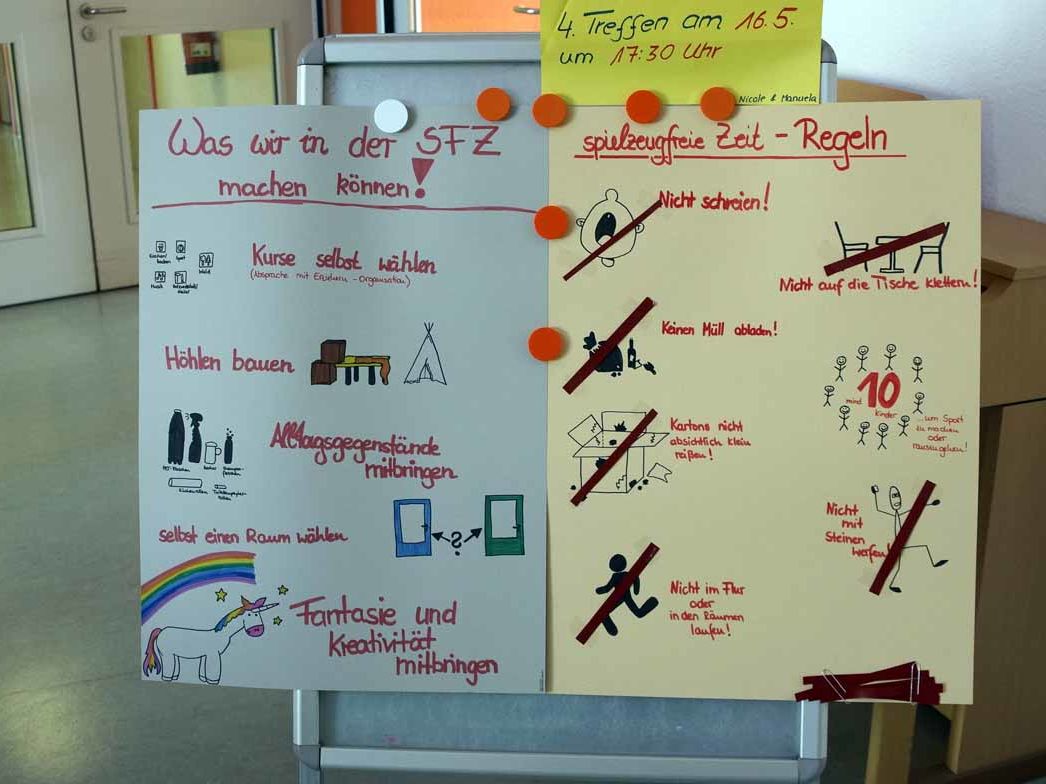 4. Treffen am 16.5.
um 17:30 Uhr
Nicole & Manuela
Was wir in der SFZ
machen können!
Kurse selbst wählen
(Absprache mit Erziehern - Organisation)
Sport
Wald
Musik
Höhlen bauen
Alltagsgegenstände
mitbringen
selbst einen Raum wählen
?
Fantasie und
Kreativität
mitbringen
spielzeugfreie Zeit - Regeln
Nicht schreien!
Nicht auf die Tische klettern!
Keinen Müll abladen!
mind. 10
kinder
...um Sport
zu machen
oder
rauszugehen!
Kartons nicht
absichtlich klein
reißen!
Nicht
mit
Steinen
werfen!
Nicht im Flur
oder
in den Räumen
laufen!